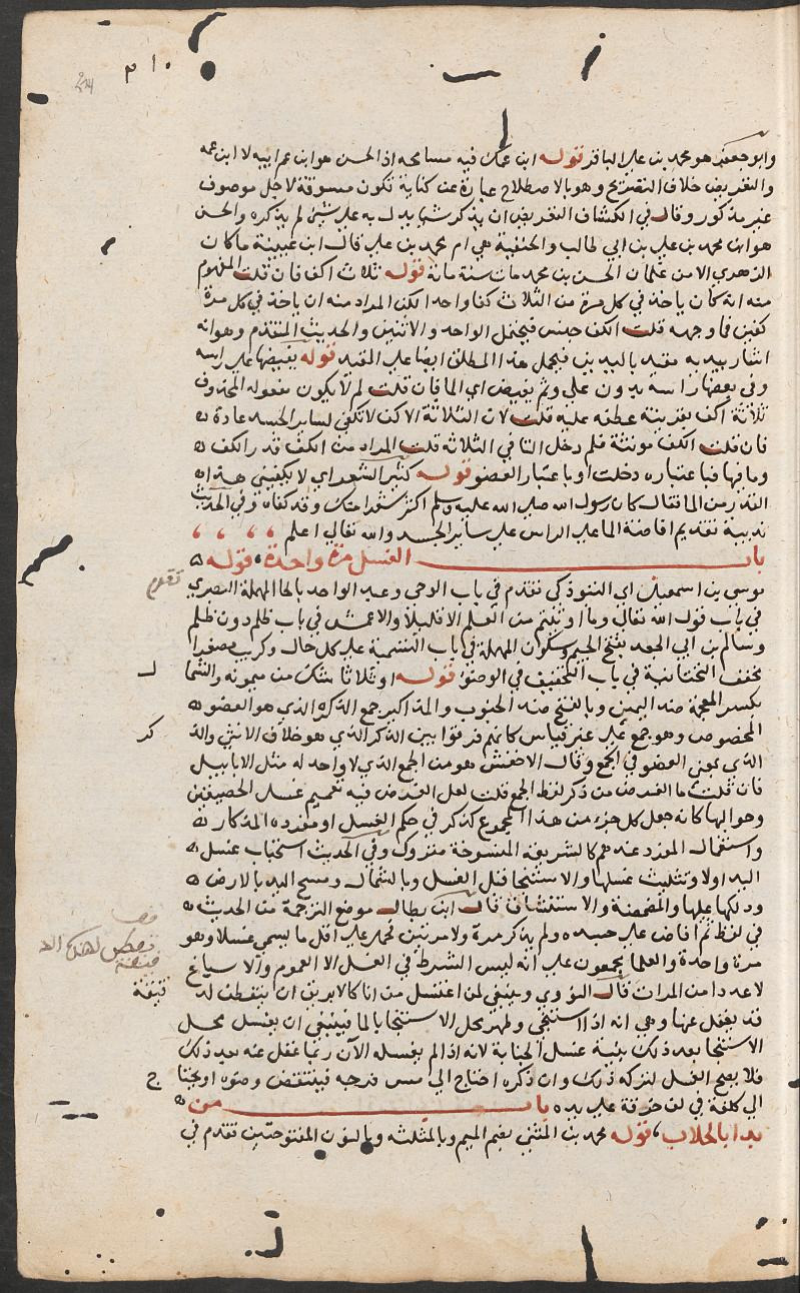 ٣١٠
وابو جعفر هو محمد بن علي الباقر قوله ابن عمك فيه مسامحه اذ الحسن هو ابن عم ابيه لا ابن عمه
والتعريض خلاف التصريح وهو بالاصطلاح عبارة عن كناية تكون مسوقة لاجل موصوف
غير مذكور وقال في الكشاف التعريض ان يذكر شيا يدل به على شي لم يذكره والحسن
هو ابن محمد بن علي بن ابي طالب والحنفية هي ام محمد بن علي قال ابن عيينة ما كان
الزهري الا من غلمان الحسن بن محمد مات سنة ماية قوله ثلاث اكف فان قلت المفهوم
منه انه كان ياخذ في كل مرة من الثلاث كفا واحدا لكن المراد منه ان ياخذ في كل مرة
كفين فما وجهه قلت الكف جنس فيحتمل الواحد والاثنين والحديث المتقدم وهو انه
اشار بيديه مقيد باليدين فيحمل هذا المطلق ايضا على المقيد قوله يفيضها على راسه
وفي بعضها راسه بدون علي وثم يفيض اي الما فان قلت لم لا يكون مفعوله المحذوف
ثلاثة اكف بقرينة عطفه عليه قلت لان الثلاثة الاكف لا تكفي لساير الجسد عادة
فان قلت الكف مونثة فلم دخل التا في الثلاثه قلت المراد من الكف قدر الكف
وما فيها فباعتباره دخلت او باعتبار العضو قوله كثير الشعر اي لا يكفيني هذا
القدر من الما فقال كان رسول الله صلى الله عليه وسلم اكثر شعرا منك وقد كفاه وفي الحديث
ندبية تقديم افاضة الما على الراس على ساير الجسد والله تعالى اعلم
باب الغسل مرة واحدة قوله
موسى بن اسمعيل اي التبوذكي تقدم في باب الوحى وعبد الواحد بالحا المهملة البصري
تقدم
في باب قول الله تعالى وما اوتيتم من العلم الا قليلا والاعمش في باب ظلم دون ظلم
وسالم بن ابي الجعد بفتح الجيم وسكون المهملة في باب التسمية على كل حال وكريب مصغرا
مخفف التحتانية في باب التخفيف في الوضوء قوله او ثلاثا شك من ميمونه والشما
ل
بكسر المعجمة ضد اليمين وبالفتح ضد الجنوب والمذاكير جمع الذكر الذي هو العضو
المخصوص وهو جمع على غير قياس كانهم فرقوا بين الذكر الذي هو خلاف الانثى والذ
كر
الذي بمعنى العضو في الجمع وقال الاخفش هو من الجمع الذي لا واحد له مثل الابابيل
فان قلت ما الغرض من ذكر لفظ الجمع قلت لعل الغرض فيه تعميم غسل الخصيتين
وحواليها كانه جعل كل جزء من هذا المجموع كذكر في حكم الغسل او مفرده المذكار
واستعمال المفرد عندهم كالشريعة المنسوخة متروك وفي الحديث استحباب غسل
اليد اولا وتثليث غسلها والاستنجا قبل الغسل وبالشمال ومسح اليد بالارض
ودلكها عليها والمضمضة والاستنشاق قال ابن بطال موضع الترجمة من الحديث
في لفظ ثم افاض على جسده ولم يذكر مرة ولا مرتين فحمل على اقل ما يسمى غسلا وهو
مرة واحدة والعلما مجمعون على انه ليس الشرط في الغسل الا العموم والاسباغ
لا عددا من المرات قال النووي وينبغي لمن اغتسل من انا كالابريق ان يتفطن لد
قيقة
قد يغفل عنها وهي انه اذا استنجى وطهر محل الاستنجا بالما فينبغي ان يغسل محل
الاستنجا بعد ذلك بنية غسل الجنابة لانه اذا لم يغسله الآن ربما غفل عنه بعد ذلك
فلا يصح الغسل لتركه ذلك وان ذكره احتاج الى مس فرجه فينتقض وضوءه او يحتا
ج
الى كلفة في لف خرقة على يده باب من
بدا بالحلاب قوله محمد بن المثنى بضم الميم وبالمثلثه وبالنون المفتوحتين تقدم في